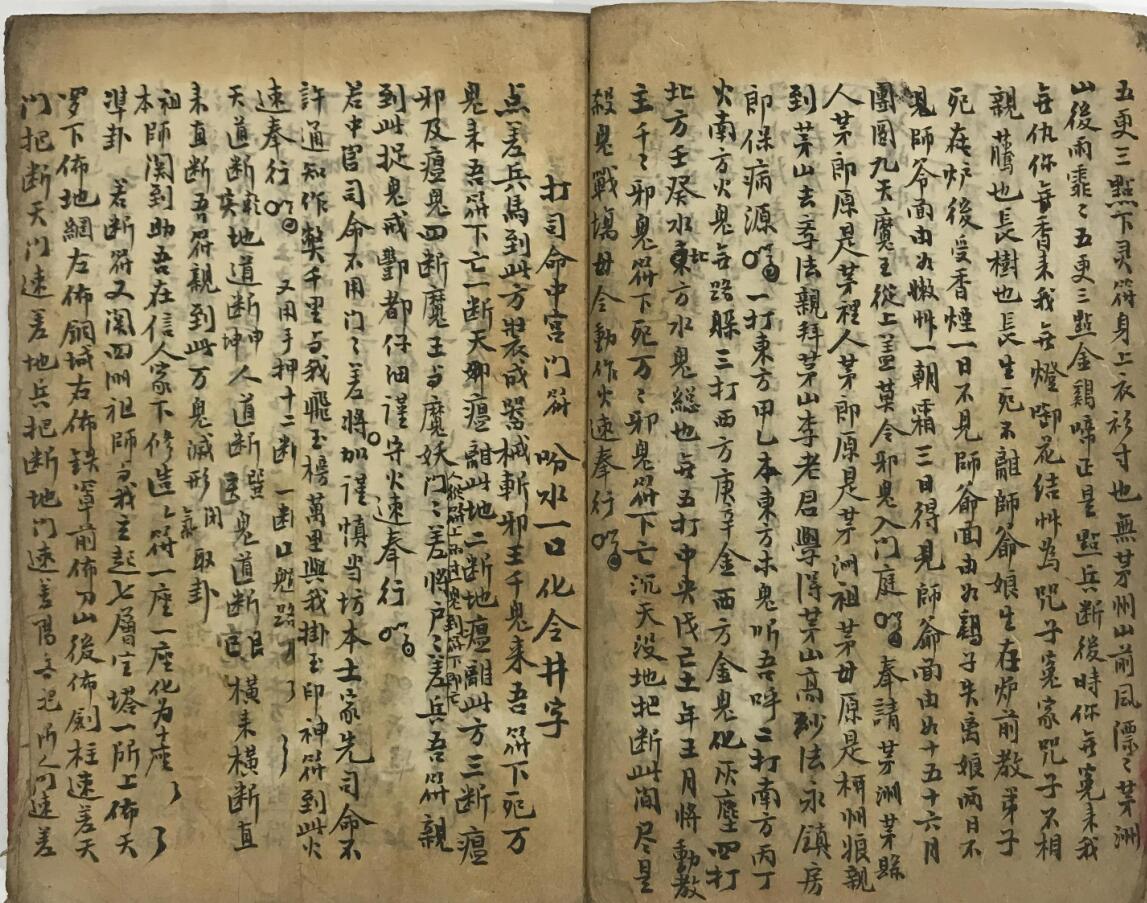 五更三點下灵符身上衣衫寸也無茅州山前風漂〻茅洲
山後雨霏〻五更三點金鷄啼正是點兵断後時你無冤来我
無仇你無香来我無燈啣花結艸為咒子冤家咒子不相
親藤也長樹也長生死不離師爺娘生在炉前教弟子
死在炉後受香煙一日不見師爺面由如鷄子失离娘兩日不
見師爷面由如嫩艸一朝霜三日得見師爺面由如十五十六月
團圓九天魔王從上盖莫令邪鬼入门庭 奉請茅洲茅縣
人茅郎原是茅裡人茅郎原是茅洲祖茅母原是柳州娘親
到茅山去孝法親拜茅山李老君學得茅山高妙法永鎮房
郎保病源 一打東方甲乙木東方木鬼听吾呼二打南方丙丁
火南方火鬼無路躲三打西方庚辛金西方金鬼化灰塵四打
北方壬癸水東北方水鬼總也無五打中央戊己土年王月將動教
主千〻邪鬼符下死万〻邪鬼符下亡沉天没地把断此间尽是
殺鬼戰塲毋令動作火速奉行
打司命中宫门符 吩水一口化令井字
点差兵馬到此方裝成器械斬邪王千鬼来吾符下死万
鬼来吾符下亡一断天瘟離此地二断地瘟離此方三断瘟
邪及瘟鬼四断魔王与魔妖门〻差將户〻差兵吾符親
人從符上过鬼到符下即亡
到此捉鬼滅酆都仔细謹守火速奉行
若中宫司命不用门〻差將加謹慎当坊本土家先司命不
許通知作弊千里与我飛玉榜萬里與我掛玉印神符到此火
速奉行 又用手押十二断 一断口 路
天道断 地道断坤人道断 鬼道断 橫来橫断直
来直断吾符親到此万鬼滅形 取卦
祖本師関到助吾在信人家下修造〻符一座一座化为十座
凖卦 若断符又関四洲祖師与我立起七層宝塔一所上佈天
罗下佈地網左佈銅城右佈鉄罩前佈刀山後佈劍柱速差天
门把断天门速差地兵把断地门速差